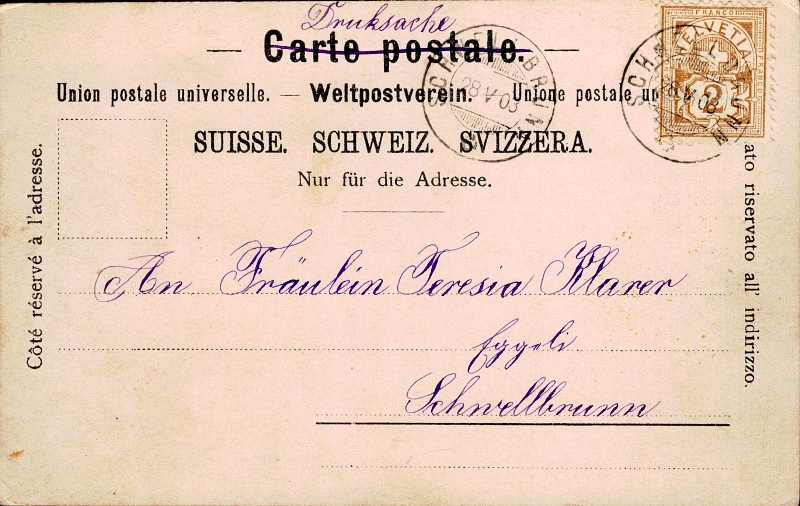 Druksache
— Carte postale. —
Union postale universelle. — Weltpostverein. — Unione postale un
SUISSE. SCHWEIZ. SVIZZERA.
Nur für die Adresse.
Côté réservé à l'adresse.
ato riservato all' indirizzo.
FRANCO
HELVETIA
2
SCHWELLBRUNN
28 V 03
SCHWELLBRUNN
28 V 03
An Fräulein Teresia Klarer
Eggeli
Schwellbrunn